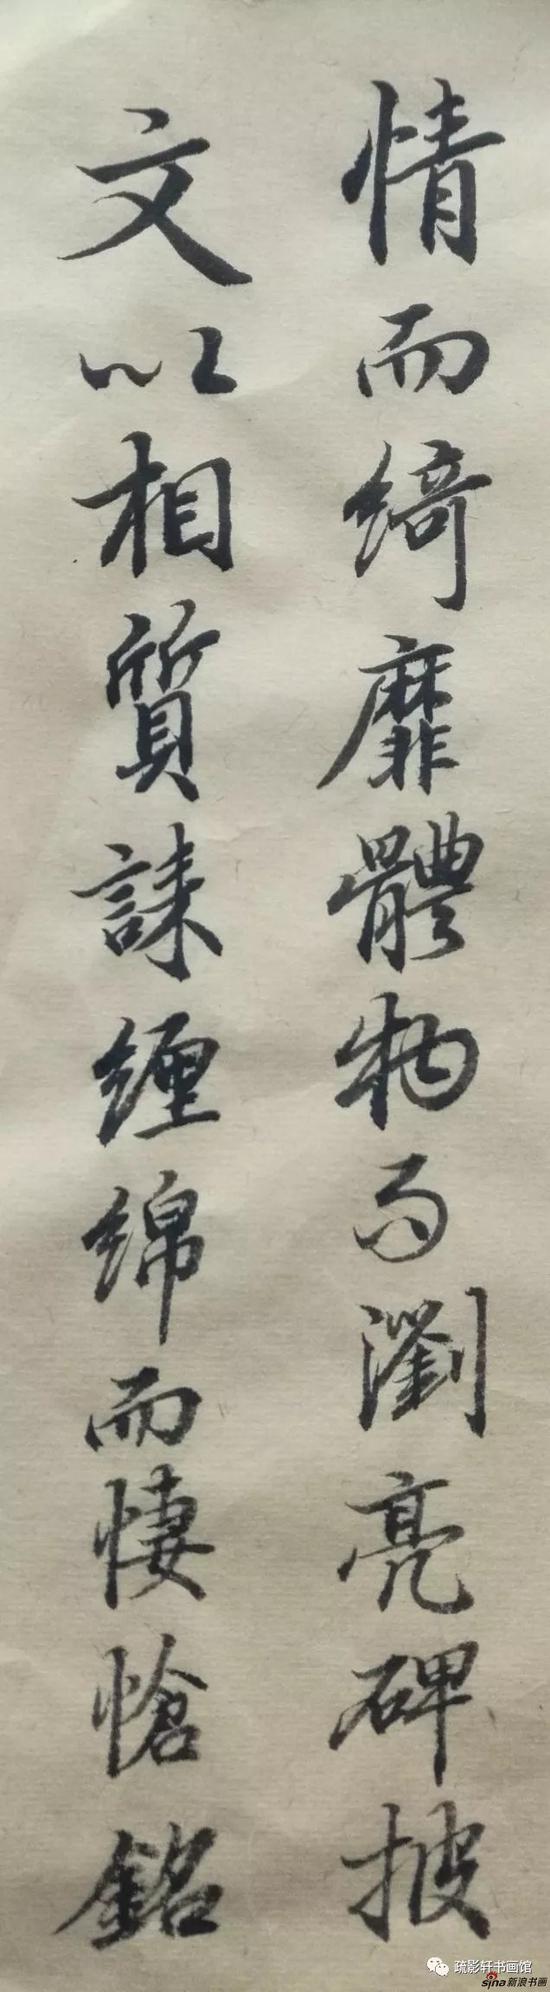 情而綺靡體物而瀏亮碑披
文以相質誄缠綿而悽愴銘
疏影轩书画馆
sina新浪书画